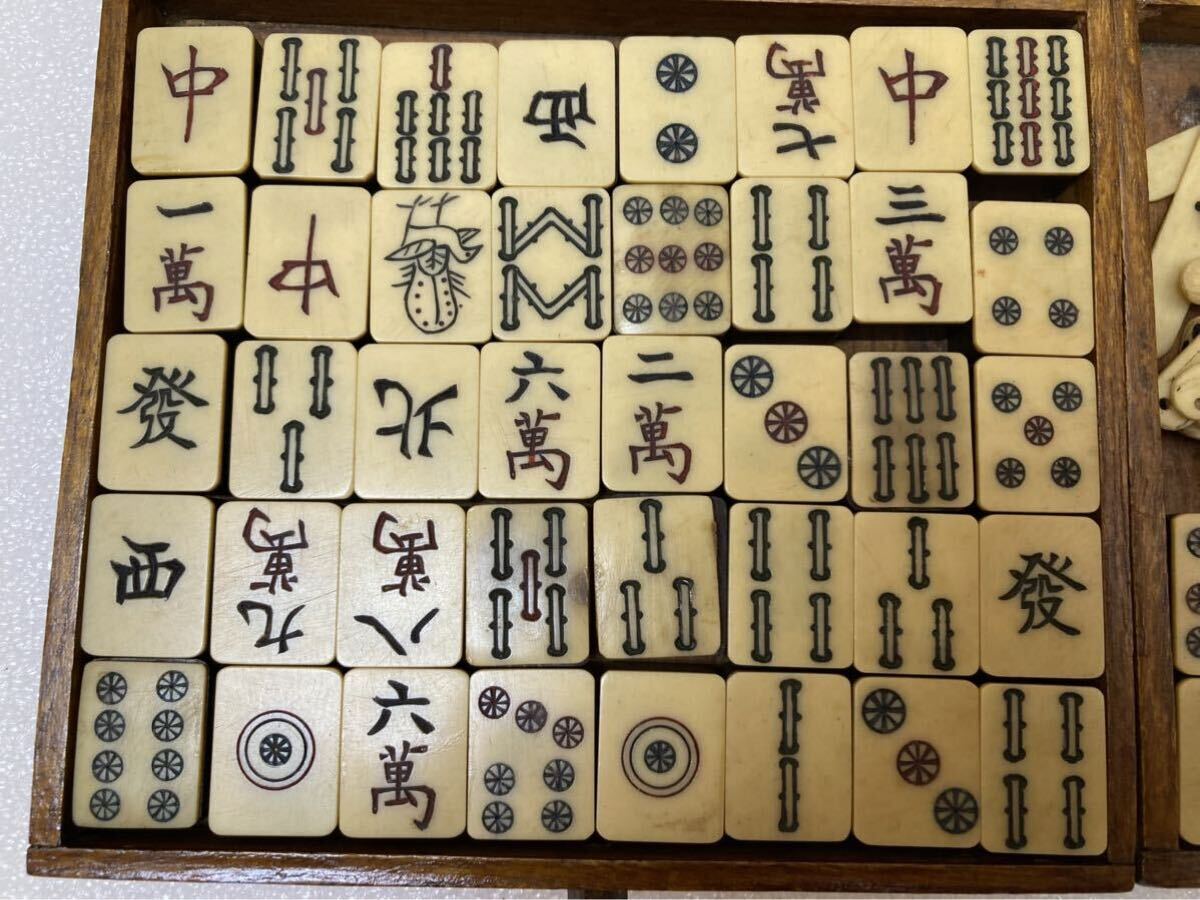 中
西
七萬
中
一萬
中
三萬
發
北
六萬
二萬
西
九萬
八萬
發
六萬